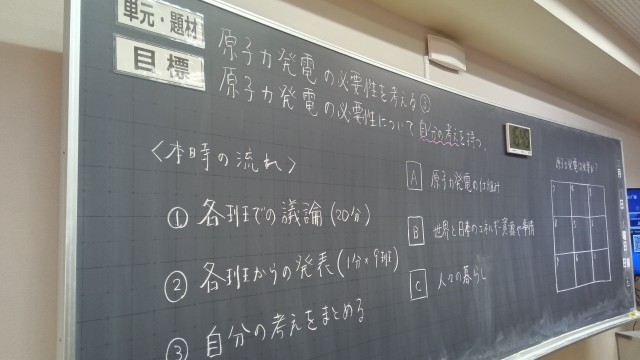 単元・題材
原子力発電の必要性を考える③
目標
原子力発電の必要性について自分の考えを持つ。
〈本時の流れ〉
① 各班での議論(20分)
② 各班からの発表(1分×9班)
③ 自分の考えをまとめる
A 原子力発電の仕組み
B 世界と日本のエネルギー資源や事情
C 人々の暮らし
月
日
曜日